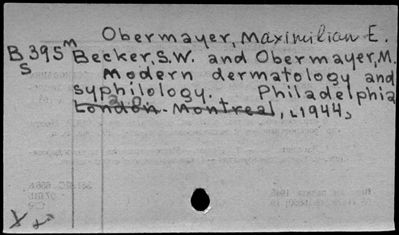 Obermayer, Maximilian E.
B 395 M Becker, S.W. and Obermayer, M.
S Modern dermatology and
syphilology. Philadelphia
London. Montreal, [1944]